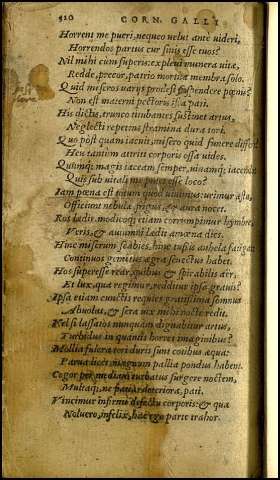 520 CORN. GALLI
Horrent me pueri, nequeo velut ante videri,
Horrendos partus cur sinis esse tuos?
Nil mihi cum superis: explevi munera vitæ,
Redde, precor, patrio mortua membra solo.
Quid miseros varijs prodest suspendere pœnis?
Non est materni pectoris ista pati.
His dictis, trunco titubantes sustinet artus,
Neglecti repetens stramina dura tori.
Quo post quam iacuit, misero quid funere differt?
Heu tantum attriti corporis ossa vides.
Quumq; magis iaceam semper, vivamq; iacendo
Quis sub vitali me putet esse loco?
Iam pœna est totum quod vivimus: urimur æstu,
Officiunt nebulæ, frigus, & aura nocet.
Ros lædit, modicoq; etiam corrumpimur hymbre,
Veris, & autumni lædit amœna dies.
Hinc miseros scabies, hinc tussis anhela fatigat
Continuos gemitus ægra senectus habet.
Hos superesse rear, quibus & spirabilis aër,
Et lux, qua regimur, redditur ipsa gravis?
Ipsa etiam cunctis requies gratissima somnus
Avuolat, & sera vix mihi nocte redit.
Vel si lassatos nunquam dignabitur artus,
Turbidus in quantis horret imaginibus?
Mollia fulcra tori duris sunt cotibus æqua:
Parva licet magnum pallia pondus habent.
Cogor per mediam turbatus surgere noctem,
Multaq; ne patiar deteriora, pati.
Vincimur infirmi defectu corporis: & qua
Noluero, infelix, hac ego parte trahor.